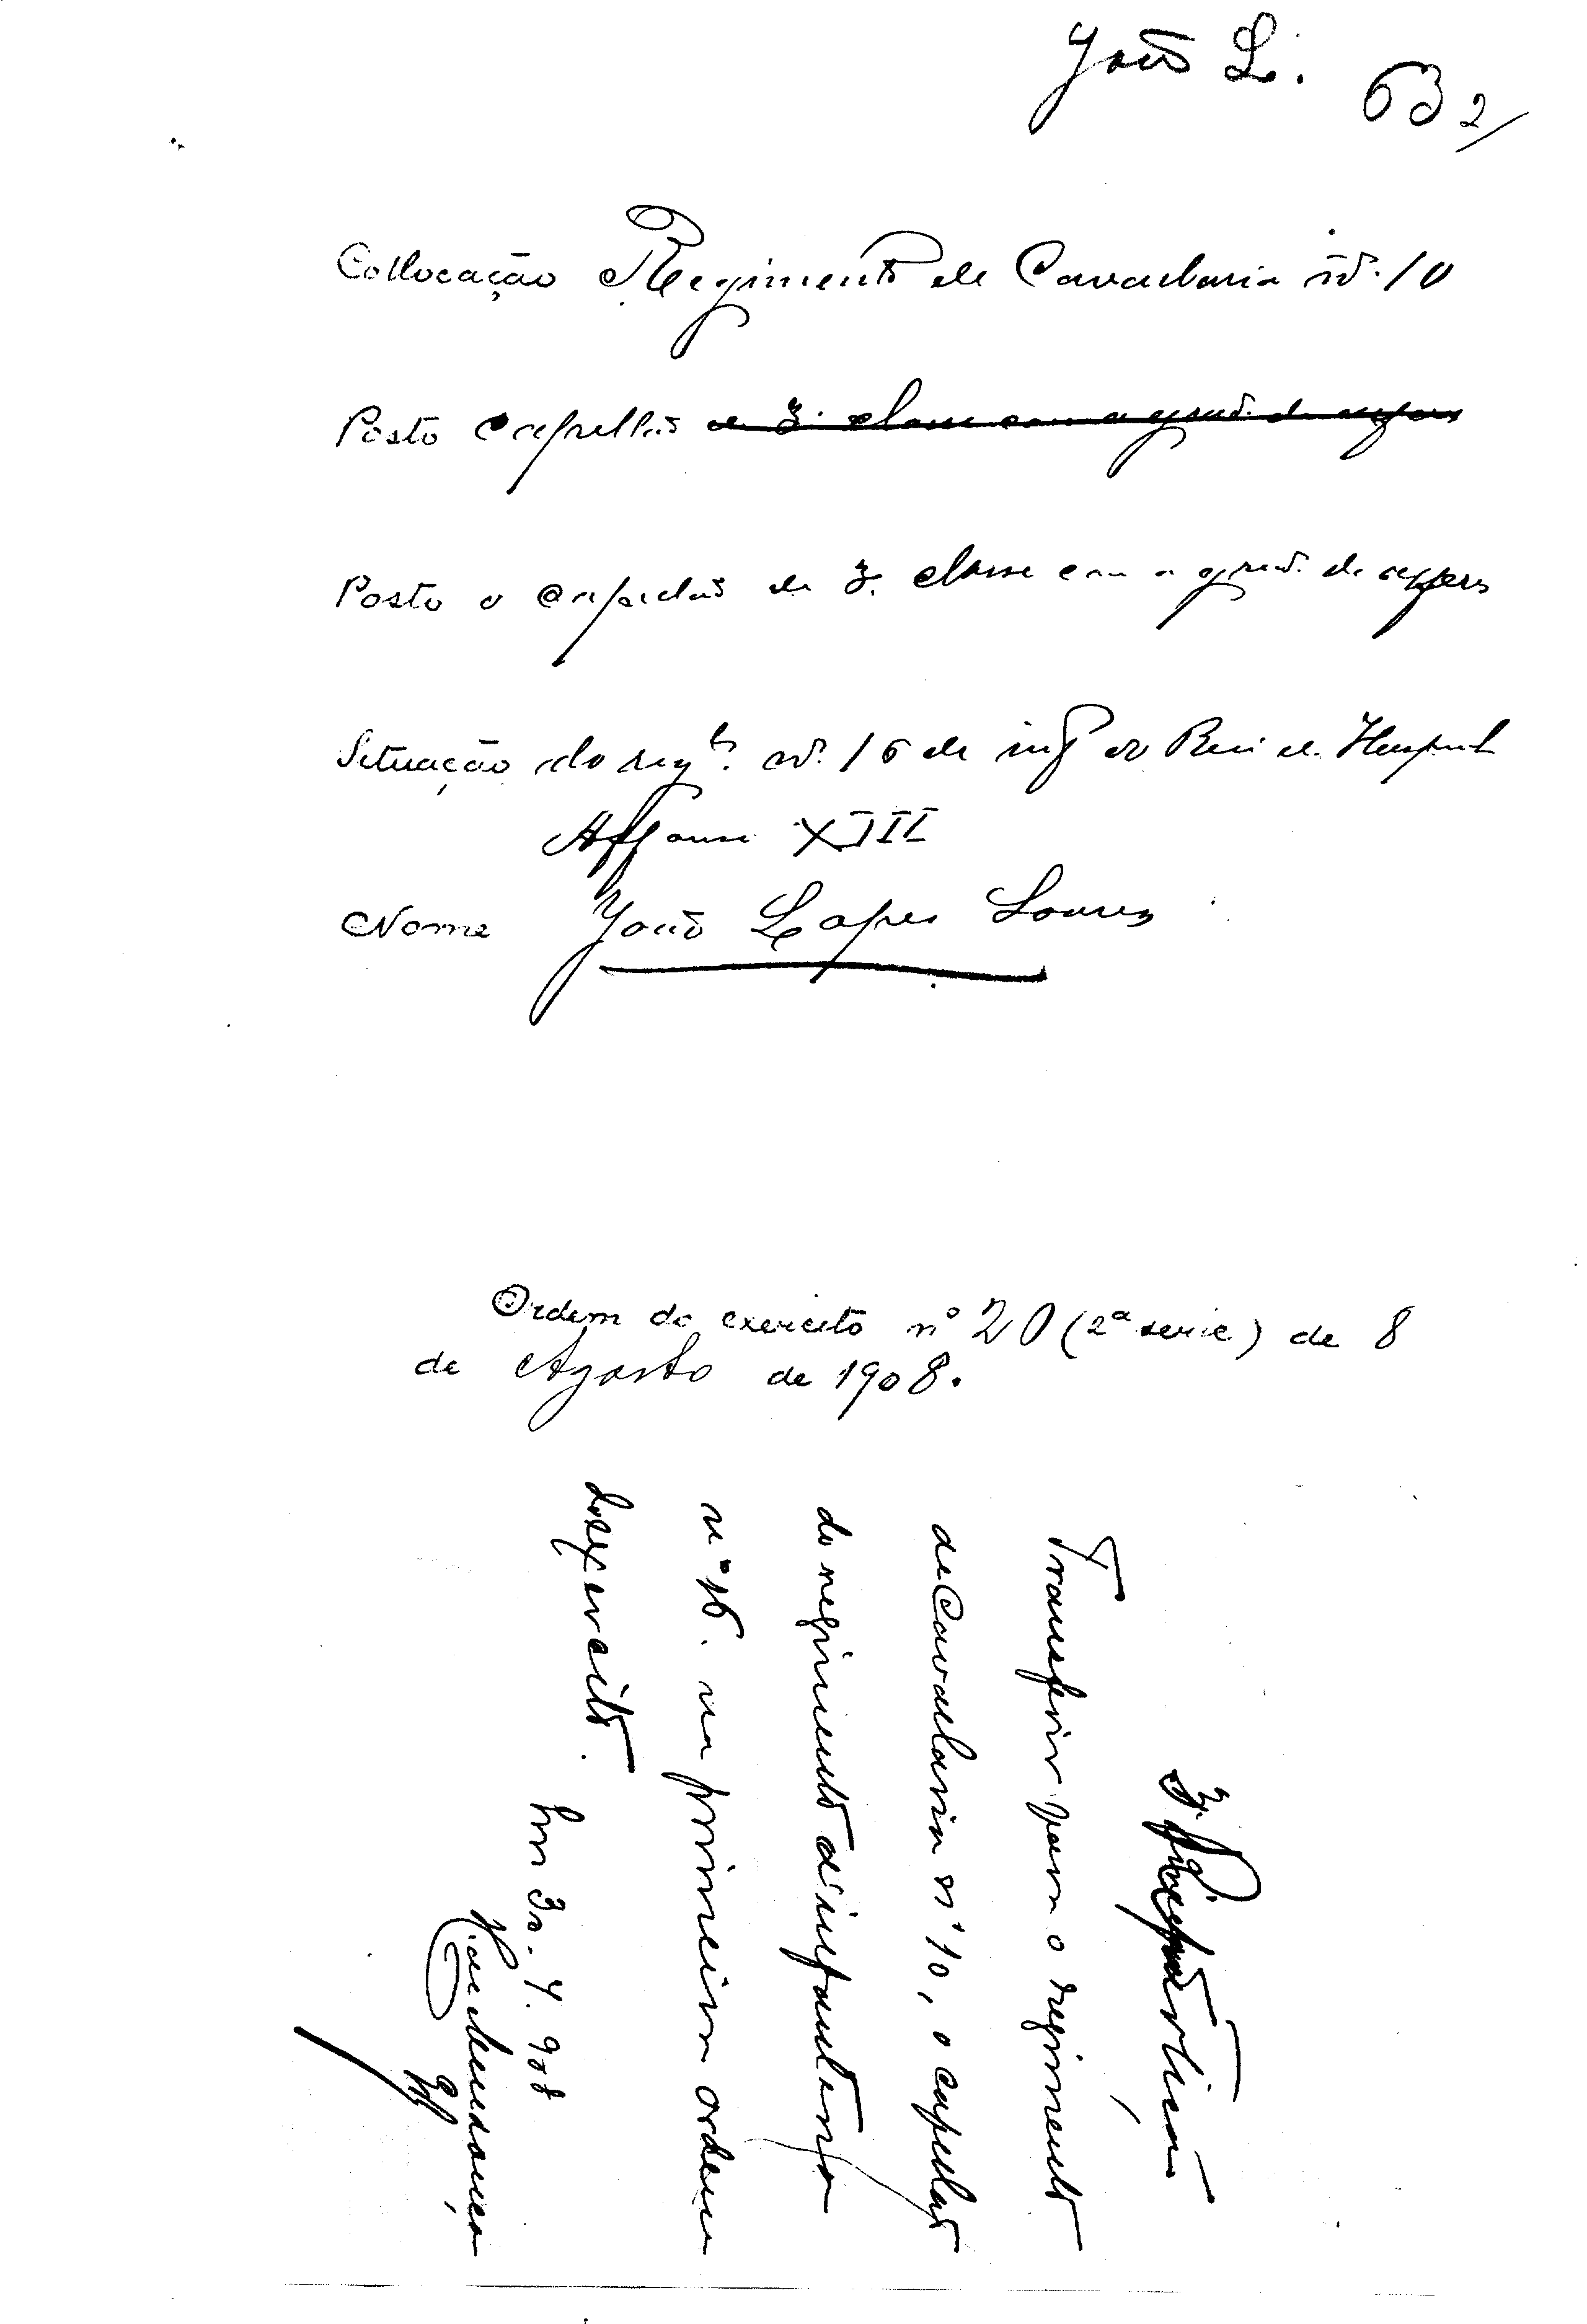 João L.
632/
Collocação Regimento de Cavallaria nº. 10
Posto capellão de 3.ª classe com a grad. de alferes
Posto o Capellão de 3.ª classe com a grad. de alferes
Situação do regto. nº. 16 de inf do Rei de Hesp
Affonso XIII
Nome João Lopes Soares
Ordem do exercito nº 20 (2ª serie) de 8
de Agosto de 1908.
3.ª Repartição
Transferir para o regimento
de Cavallaria nº 10, o capellão
do regimento d'infanteria
nº 16. na primeira ordem
do exercito.
Em 30.7.908
Mendonça